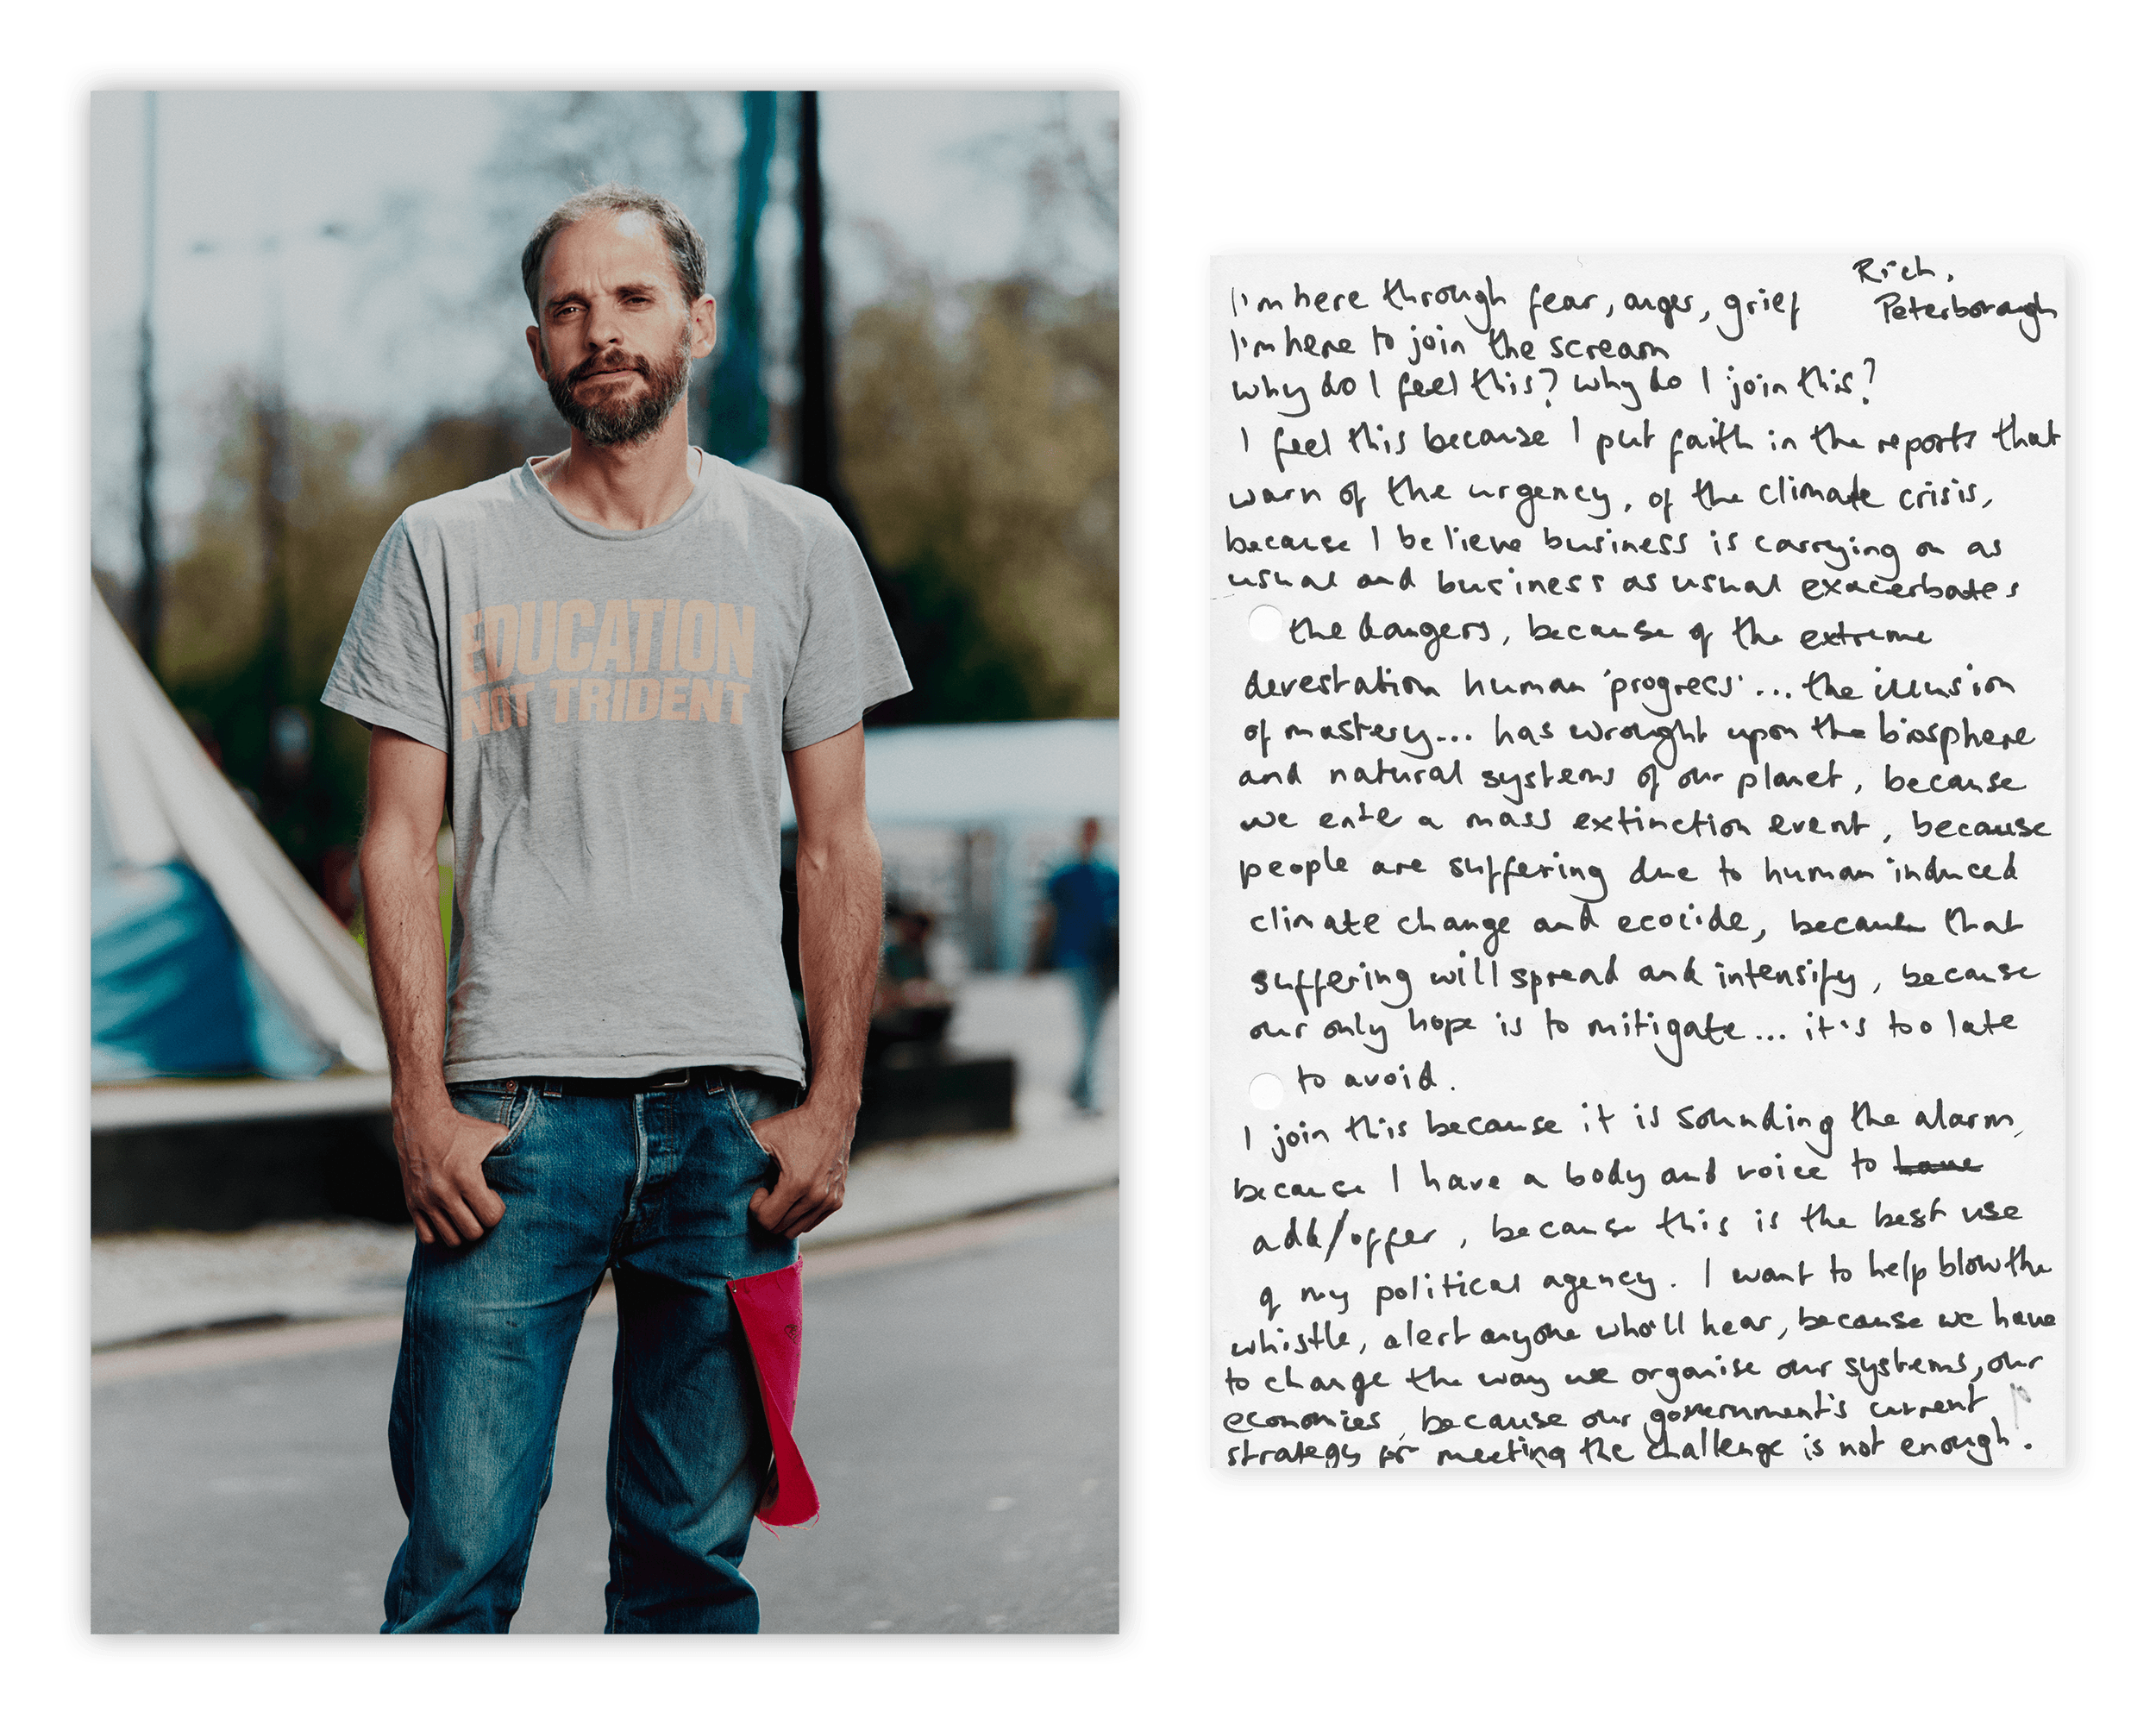 EDUCATION
NOT TRIDENT
Rich,
Peterborough
I'm here through fear, anger, grief
I'm here to join the scream
Why do I feel this? Why do I join this?
I feel this because I put faith in the reports that
warn of the urgency, of the climate crisis,
because I believe business is carrying on as
usual and business as usual exacerbates
the dangers, because of the extreme
devestation human 'progress'... the illusion
of mastery... has wrought upon the biosphere
and natural systems of our planet, because
we enter a mass extinction event, because
people are suffering due to human induced
climate change and ecocide, because that
suffering will spread and intensify, because
our only hope is to mitigate... it's too late
to avoid.
I join this because it is sounding the alarm,
because I have a body and voice to have
add/offer, because this is the best use
of my political agency. I want to help blow the
whistle, alert anyone who'll hear, because we have
to change the way we organise our systems, our
economies, because our government's current
strategy for meeting the challenge is not enough.